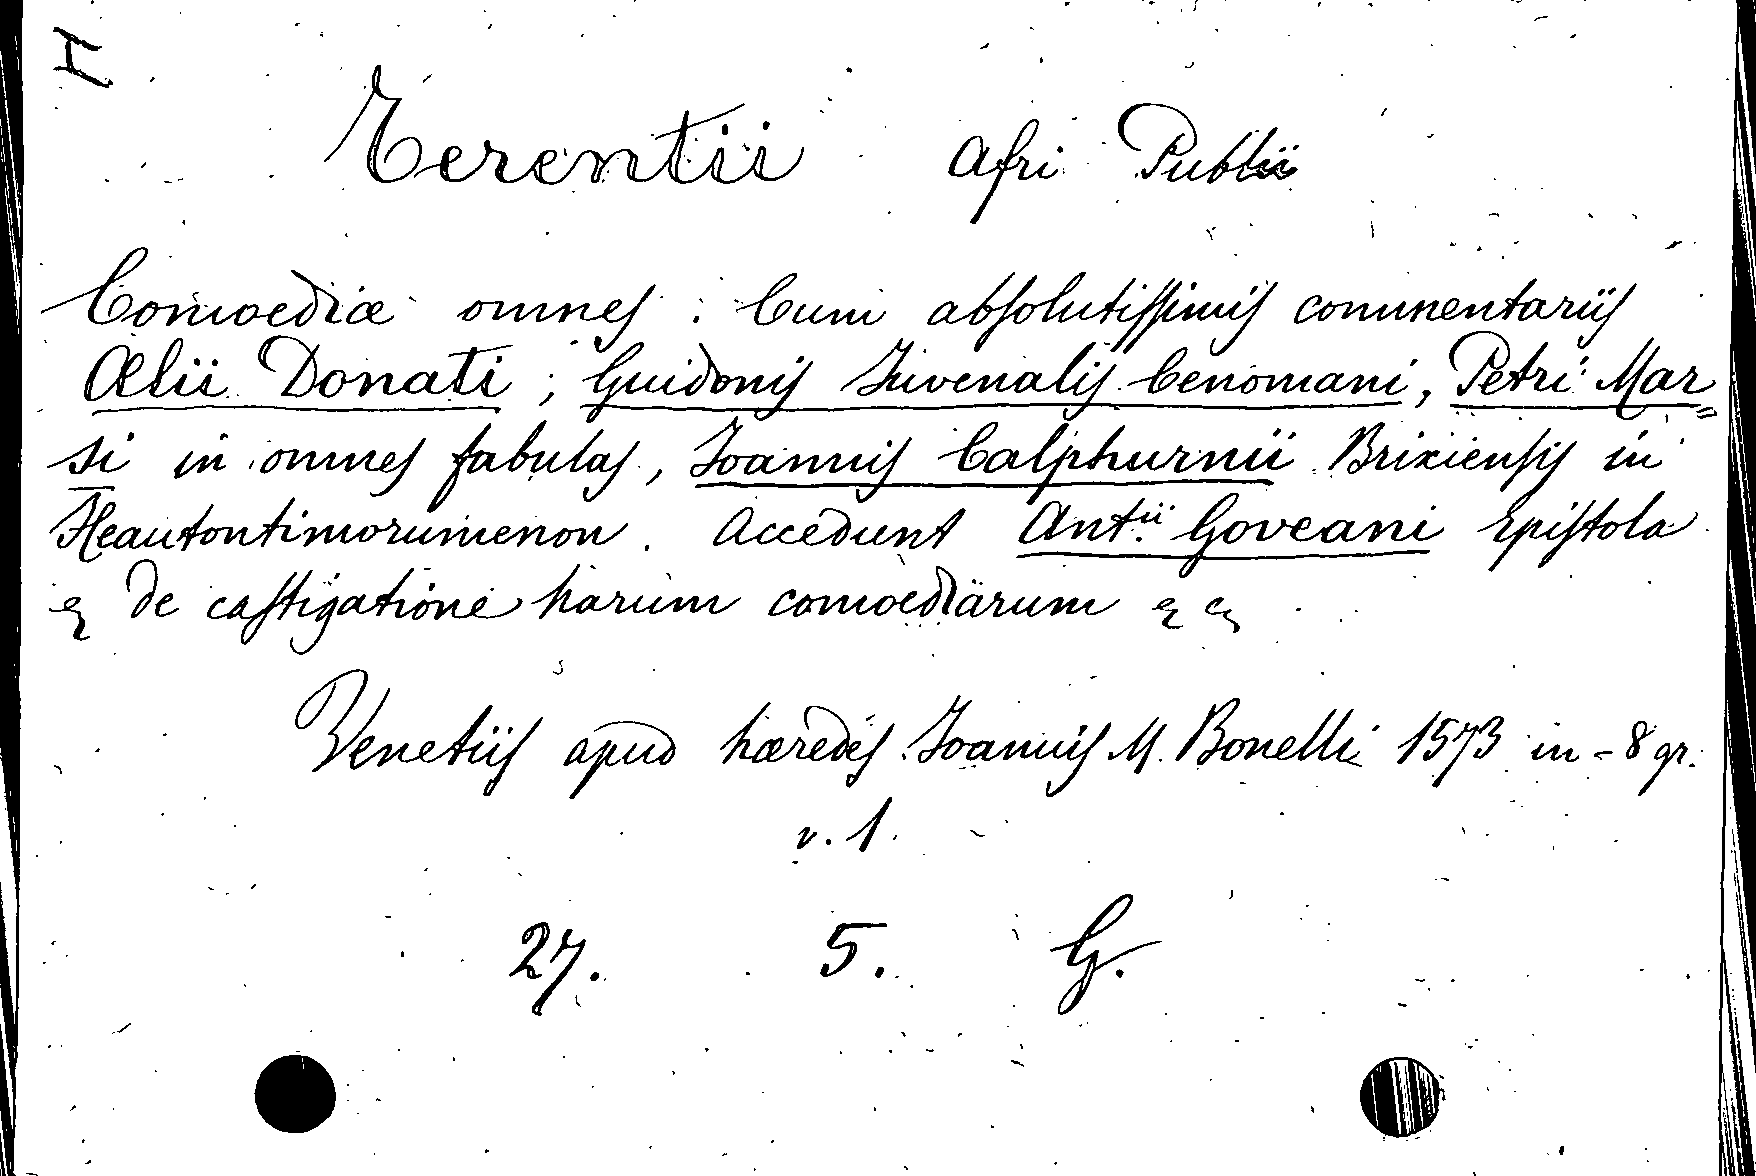 H
Terentii Afri Publii
Comoediæ omnes. Cum absolutissimis commentariis
Ælii Donati, Guidonis Juvenalis Cenomani, Petri Mar=
si in omnes fabulas, Joannis Calphurnii Brixiensis in
Heautontimorumenon. Accedunt Ant.ii Goveani Epistola
& de castigatione harum comoediarum & &
Venetiis apud hæredes Joannis M. Bonelli 1573 in-8 gr.
v. 1.
27. 5. G.